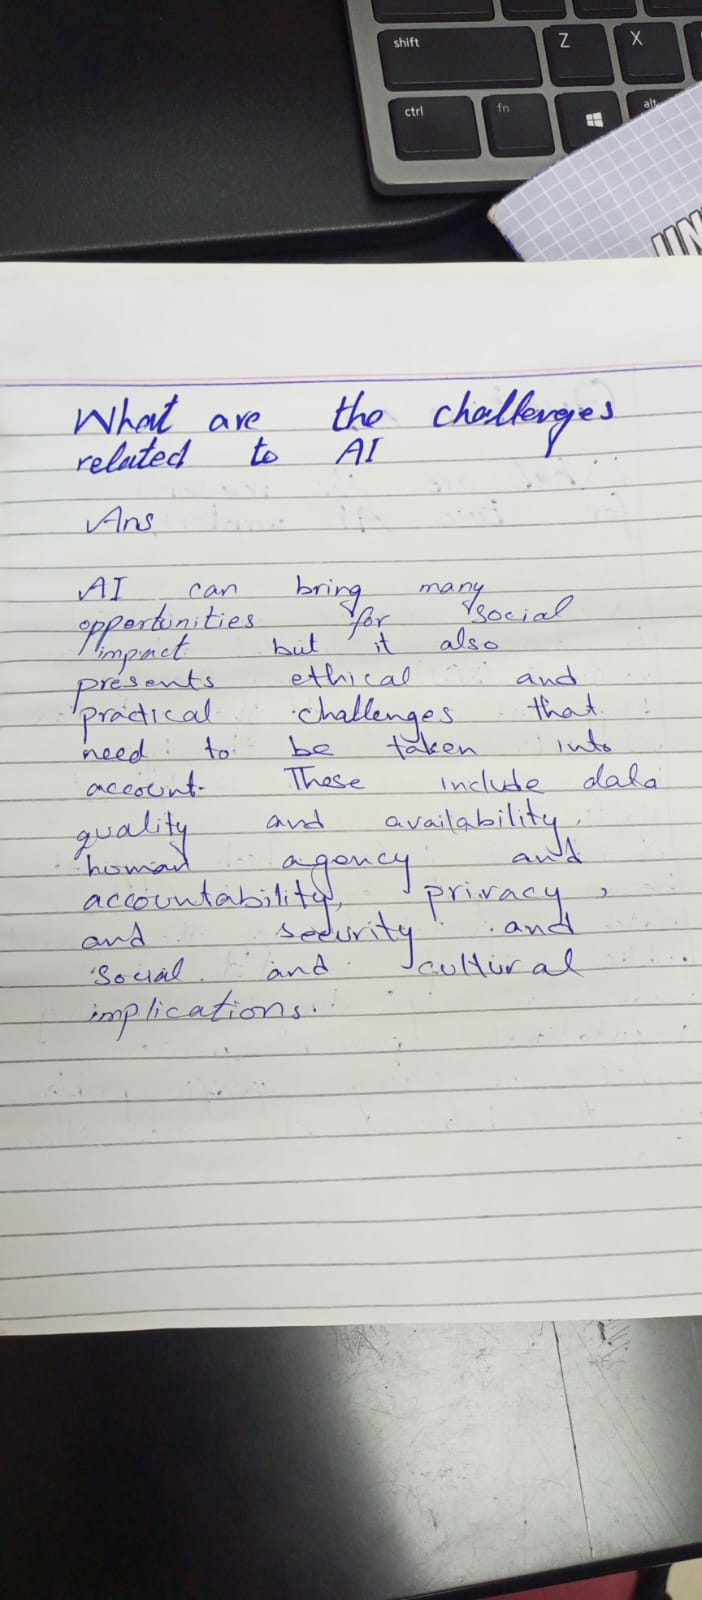 shift
Z
X
ctrl
fn
alt
UN
What are the challenges
related to AI
Ans
AI can bring many
opportunities for social
impact but it also
presents ethical and
practical challenges that
need to be taken into
account. These include data
quality and availability,
human agency and
accountability, privacy,
and security and
social and cultural
implications.